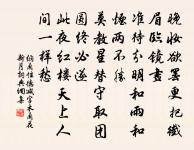 晚妝欲罷更把纖
眉臨鏡畫
准待分明和雨和
煙兩不勝
莫教星替守取團
圓終必遂
此夜紅樓天上人
間一樣愁
納蘭性德減字木蘭花
新月詞典網集